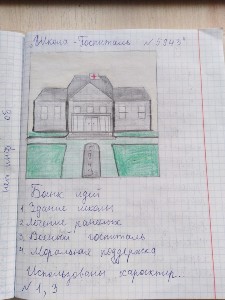 "Школа-Госпиталь №5843"
Банк идей
1. Здание школы
2. Лечение раненых
3. Военный госпиталь
4. Моральная поддержка
Использованы характир...
№ 1, 3